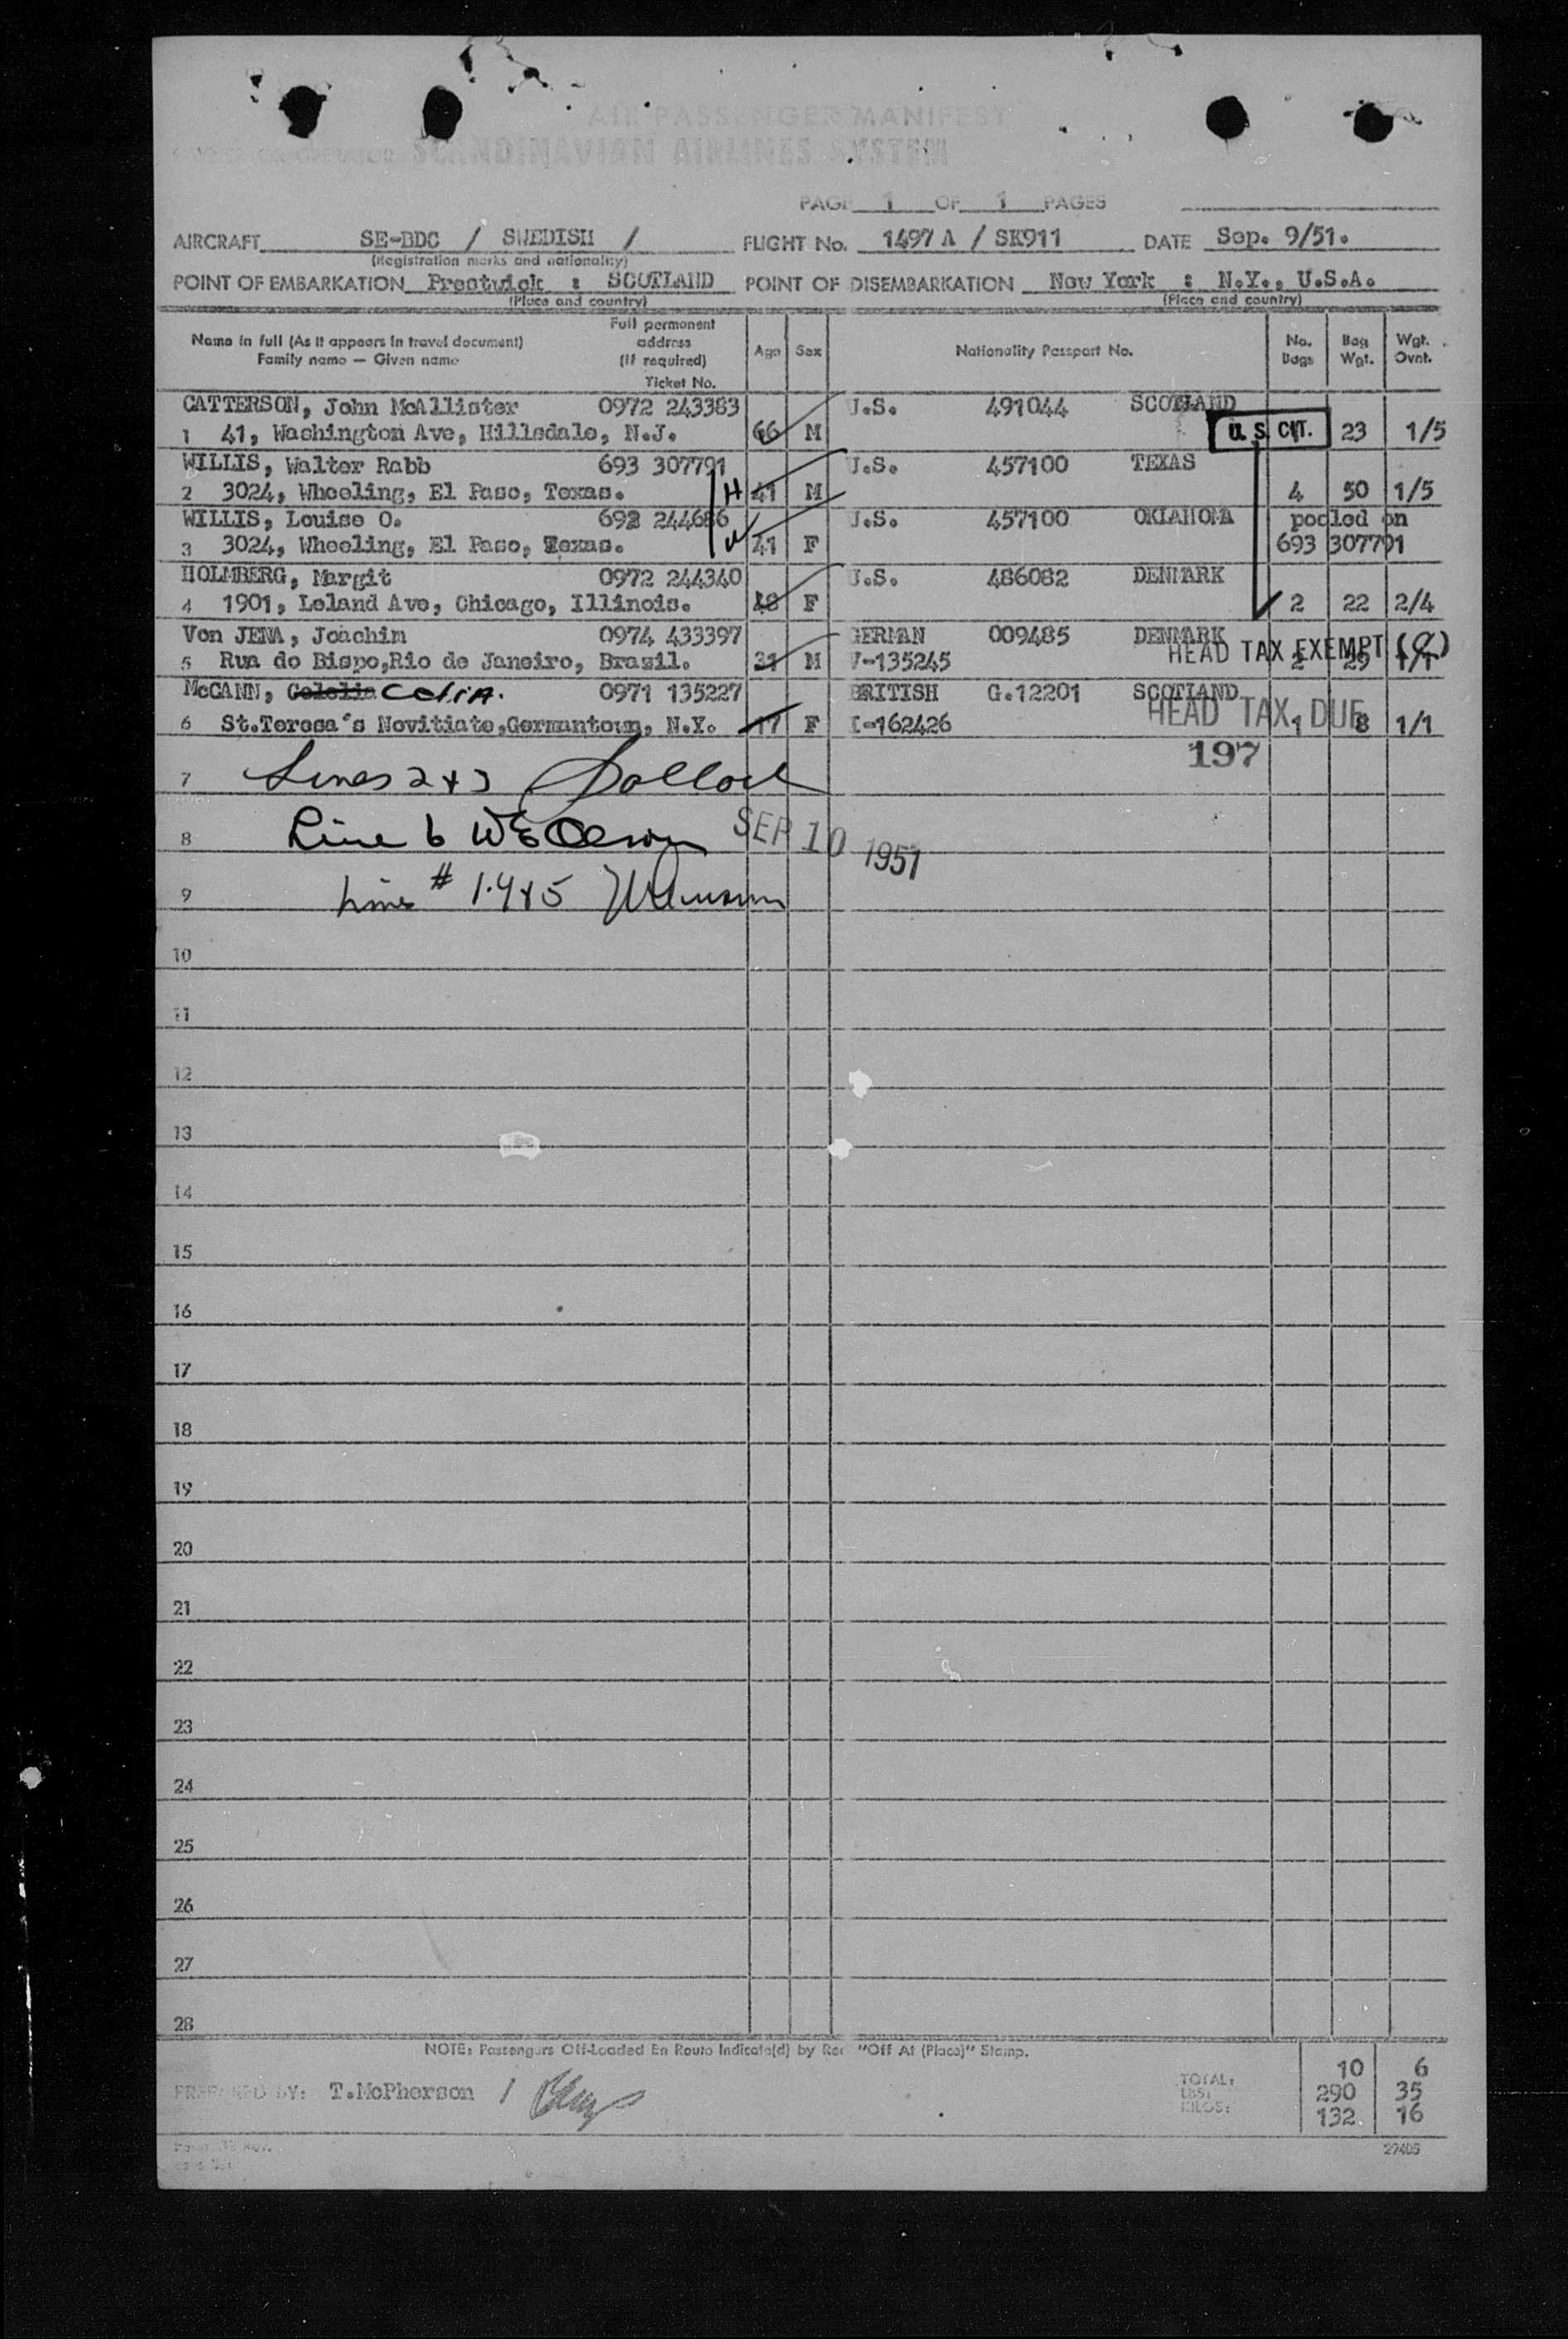 AIR PASSENGER MANIFEST
OPERATOR SCANDINAVIAN AIRLINES SYSTEM
PAGE 1 OF 1 PAGES
AIRCRAFT SE-BDC / SWEDISH / FLIGHT No. 1497 A / SK911 DATE Sep. 9/51.
(Registration marks and nationality)
POINT OF EMBARKATION Prestwick : SCOTLAND POINT OF DISEMBARKATION New York : N.Y., U.S.A.
(Place and country) (Place and country)
Name in full (As it appears in travel document) Family name — Given name Full permanent address (If required) Ticket No. Age Sex Nationality Passport No. No. Bags Bag Wgt. Wgt. Ovnt.
CATTERSON, John McAllister 0972 243383 U.S. 491044 SCOTLAND
1 41, Washington Ave, Hillsdale, N.J. 66 M U.S. CIT. 23 1/5
WILLIS, Walter Rabb 693 307791 U.S. 457100 TEXAS
2 3024, Wheeling, El Paso, Texas. H 41 M 4 50 1/5
WILLIS, Louise O. 692 244686 U.S. 457100 OKLAHOMA pooled on
3 3024, Wheeling, El Paso, Texas. W 41 F 693 307791
HOLMBERG, Margit 0972 244340 U.S. 486082 DENMARK
4 1901, Leland Ave, Chicago, Illinois. 48 F 2 22 2/4
Von JENA, Joachim 0974 433397 GERMAN 009485 DENMARK
HEAD TAX EXEMPT (a)
5 Rua do Bispo, Rio de Janeiro, Brasil. 31 M V-135245 2 29 1/1
McCANN, Celelia Celia. 0971 135227 BRITISH G.12201 SCOTLAND
HEAD TAX DUE
6 St.Teresa's Novitiate, Germantown, N.Y. 17 F I-162426 1 8 1/1
197
7 Lines 2 & 3
8 Line 6 SEP 10 1951
9 Line # 1.4 & 5
10
11
12
13
14
15
16
17
18
19
20
21
22
23
24
25
26
27
28
NOTE: Passengers Off-Loaded En Route Indicate(d) by Red "Off At (Place)" Stamp.
PREPARED BY: T.McPherson /
TOTAL: 10 6
LBS: 290 35
KILOS: 132 16
27405